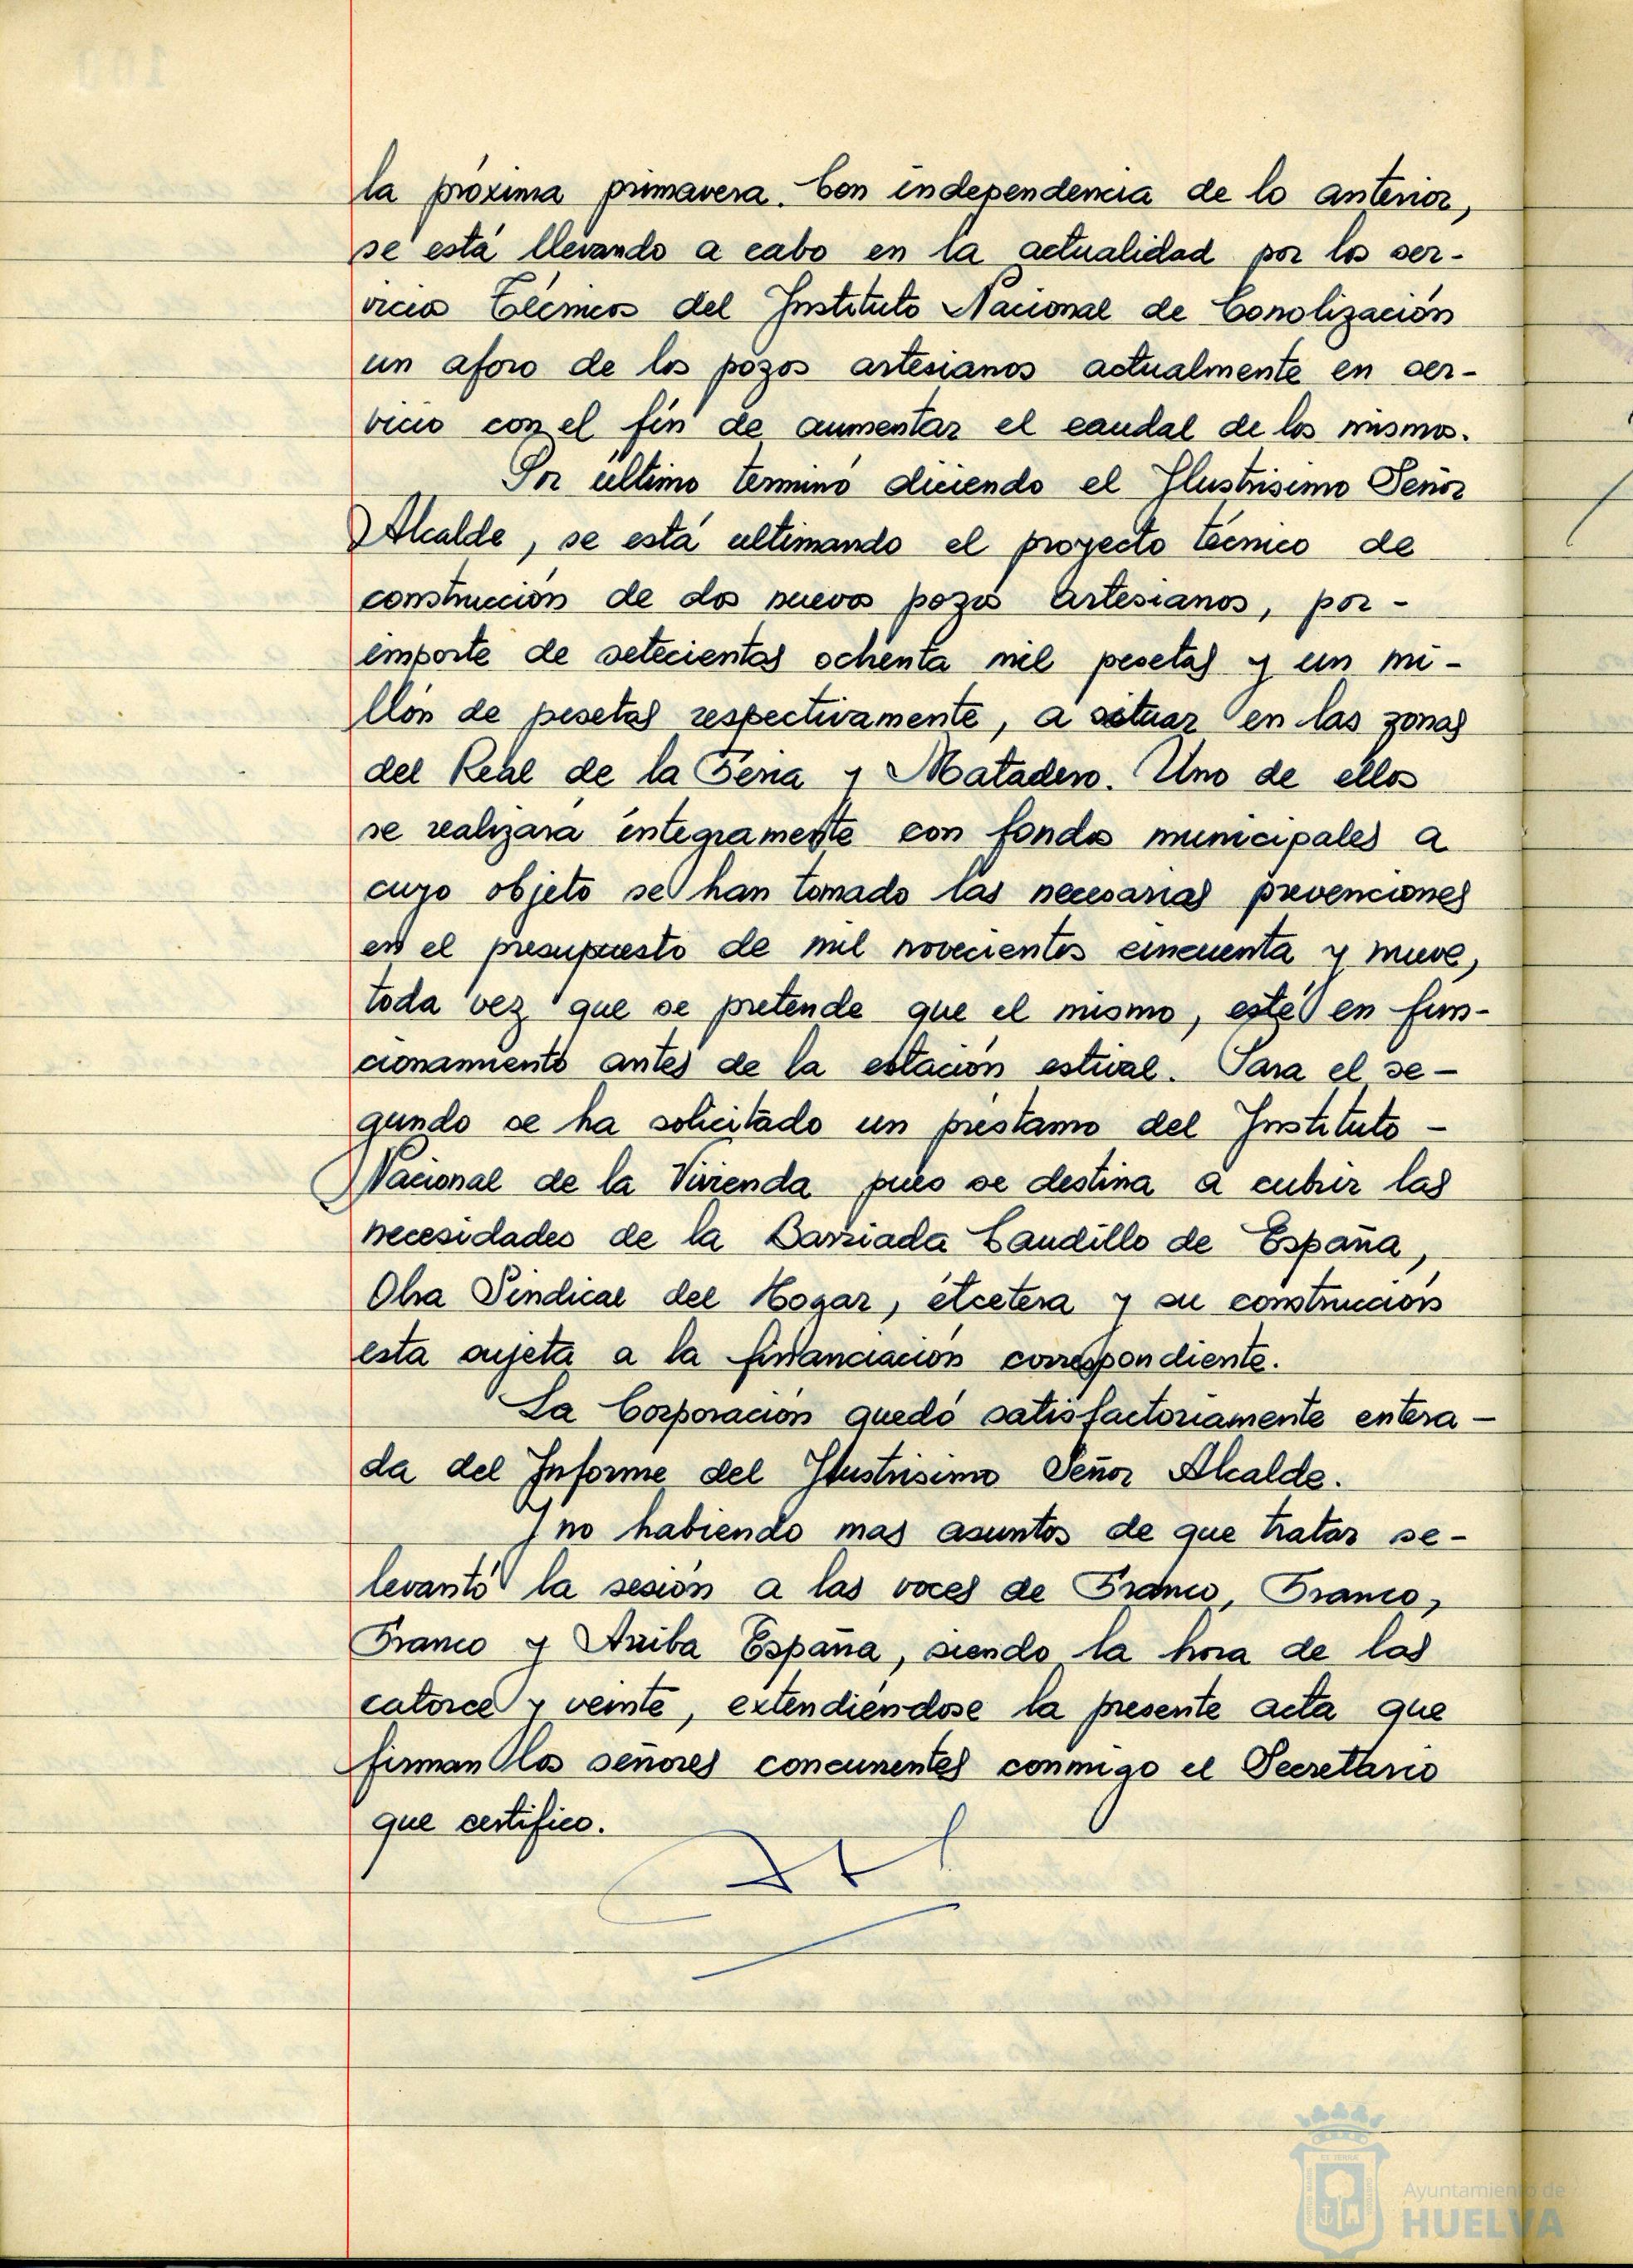 la próxima primavera. Con independencia de lo anterior,
se está llevando a cabo en la actualidad por los ser-
vicios Técnicos del Instituto Nacional de Conolización
un aforo de los pozos artesianos actualmente en ser-
vicio con el fin de aumentar el caudal de los mismos.
Por último terminó diciendo el Ilustrisimo Señor
Alcalde, se está ultimando el proyecto técnico de
construcción de dos nuevos pozos artesianos, por-
importe de setecientas ochenta mil pesetas y un mi-
llón de pesetas respectivamente, a situar en las zonas
del Real de la Feria y Matadero. Uno de ellos
se realizará íntegramente con fondos municipales a
cuyo objeto se han tomado las necesarias prevenciones
en el presupuesto de mil novecientos cincuenta y nueve,
toda vez que se pretende que el mismo, esté en fun-
cionamiento antes de la estación estival. Para el se-
gundo se ha solicitado un préstamo del Instituto -
Nacional de la Vivienda pues se destina a cubrir las
necesidades de la Barriada Caudillo de España,
Obra Sindical del Hogar, étcetera y su construcción
esta sujeta a la financiación correspondiente.
La Corporación quedó satisfactoriamente entera-
da del Informe del Ilustrisimo Señor Alcalde.
Y no habiendo mas asuntos de que tratar se-
levantó la sesión a las voces de Franco, Franco,
Franco y Arriba España, siendo la hora de las
catorce y veinte, extendiéndose la presente acta que
firman los señores concurrentes conmigo el Secretario
que certifico.
Ayuntamiento de
HUELVA